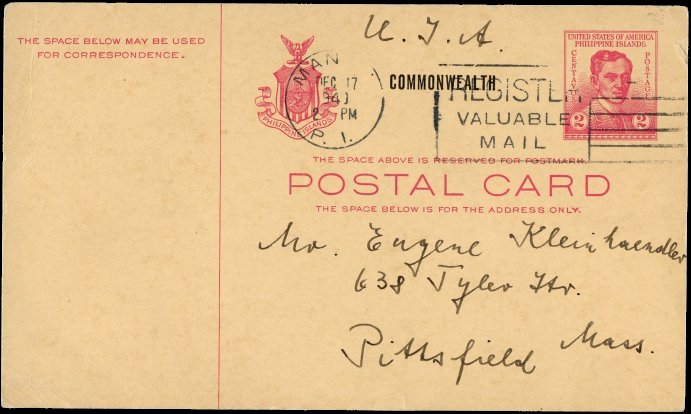 U. S. A.
THE SPACE BELOW MAY BE USED
FOR CORRESPONDENCE.
MAN
DEC 17
2 PM
P. I.
PHILIPPINE ISLANDS
COMMONWEALTH
REGISTER
VALUABLE
MAIL
UNITED STATES OF AMERICA
PHILIPPINE ISLANDS
CENTAVOS
POSTAGE
2 2
THE SPACE ABOVE IS RESERVED FOR POSTMARK.
POSTAL CARD
THE SPACE BELOW IS FOR THE ADDRESS ONLY.
Mr. Eugene Kleinhaendler
638 Tyler Str.
Pittsfield Mass.